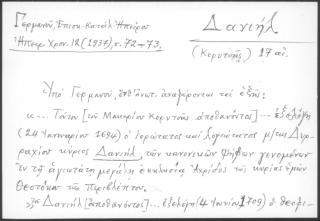 Γερμανού, Επισκ. Κατάλ. Ηπείρου
Ηπειρ. Χρον. 12 (1937), σ. 72-73.
Δανιήλ
(Κορυτσᾶς) 17 αἰ.
Ὑπό Γερμανοῦ, ἀναφέρονται τά ἑξῆς:
«... Τούτου [τοῦ Μακαρίου Κορυτσᾶς ἀποθανόντος] ... ἐξελέγη
(24 Ἰανουαρίου 1694) ὁ ἱερώτατος καί λογιώτατος μ/της Δυρ-
ραχίου κύριος Δανιήλ, τῶν κανονικῶν ψήφων γενομένων
ἐν τῇ ἁγιωτάτῃ μεγάλῃ ἐκκλησίᾳ Ἀχρίδος τῆς κυρίας ἡμῶν
Θεοτόκου τῆς Περιβλέπτου.
Δανιήλ [ἀποθανόντος] ... ἐξελέγη (4 Ἰουνίου 1709) ὁ θεοφι-